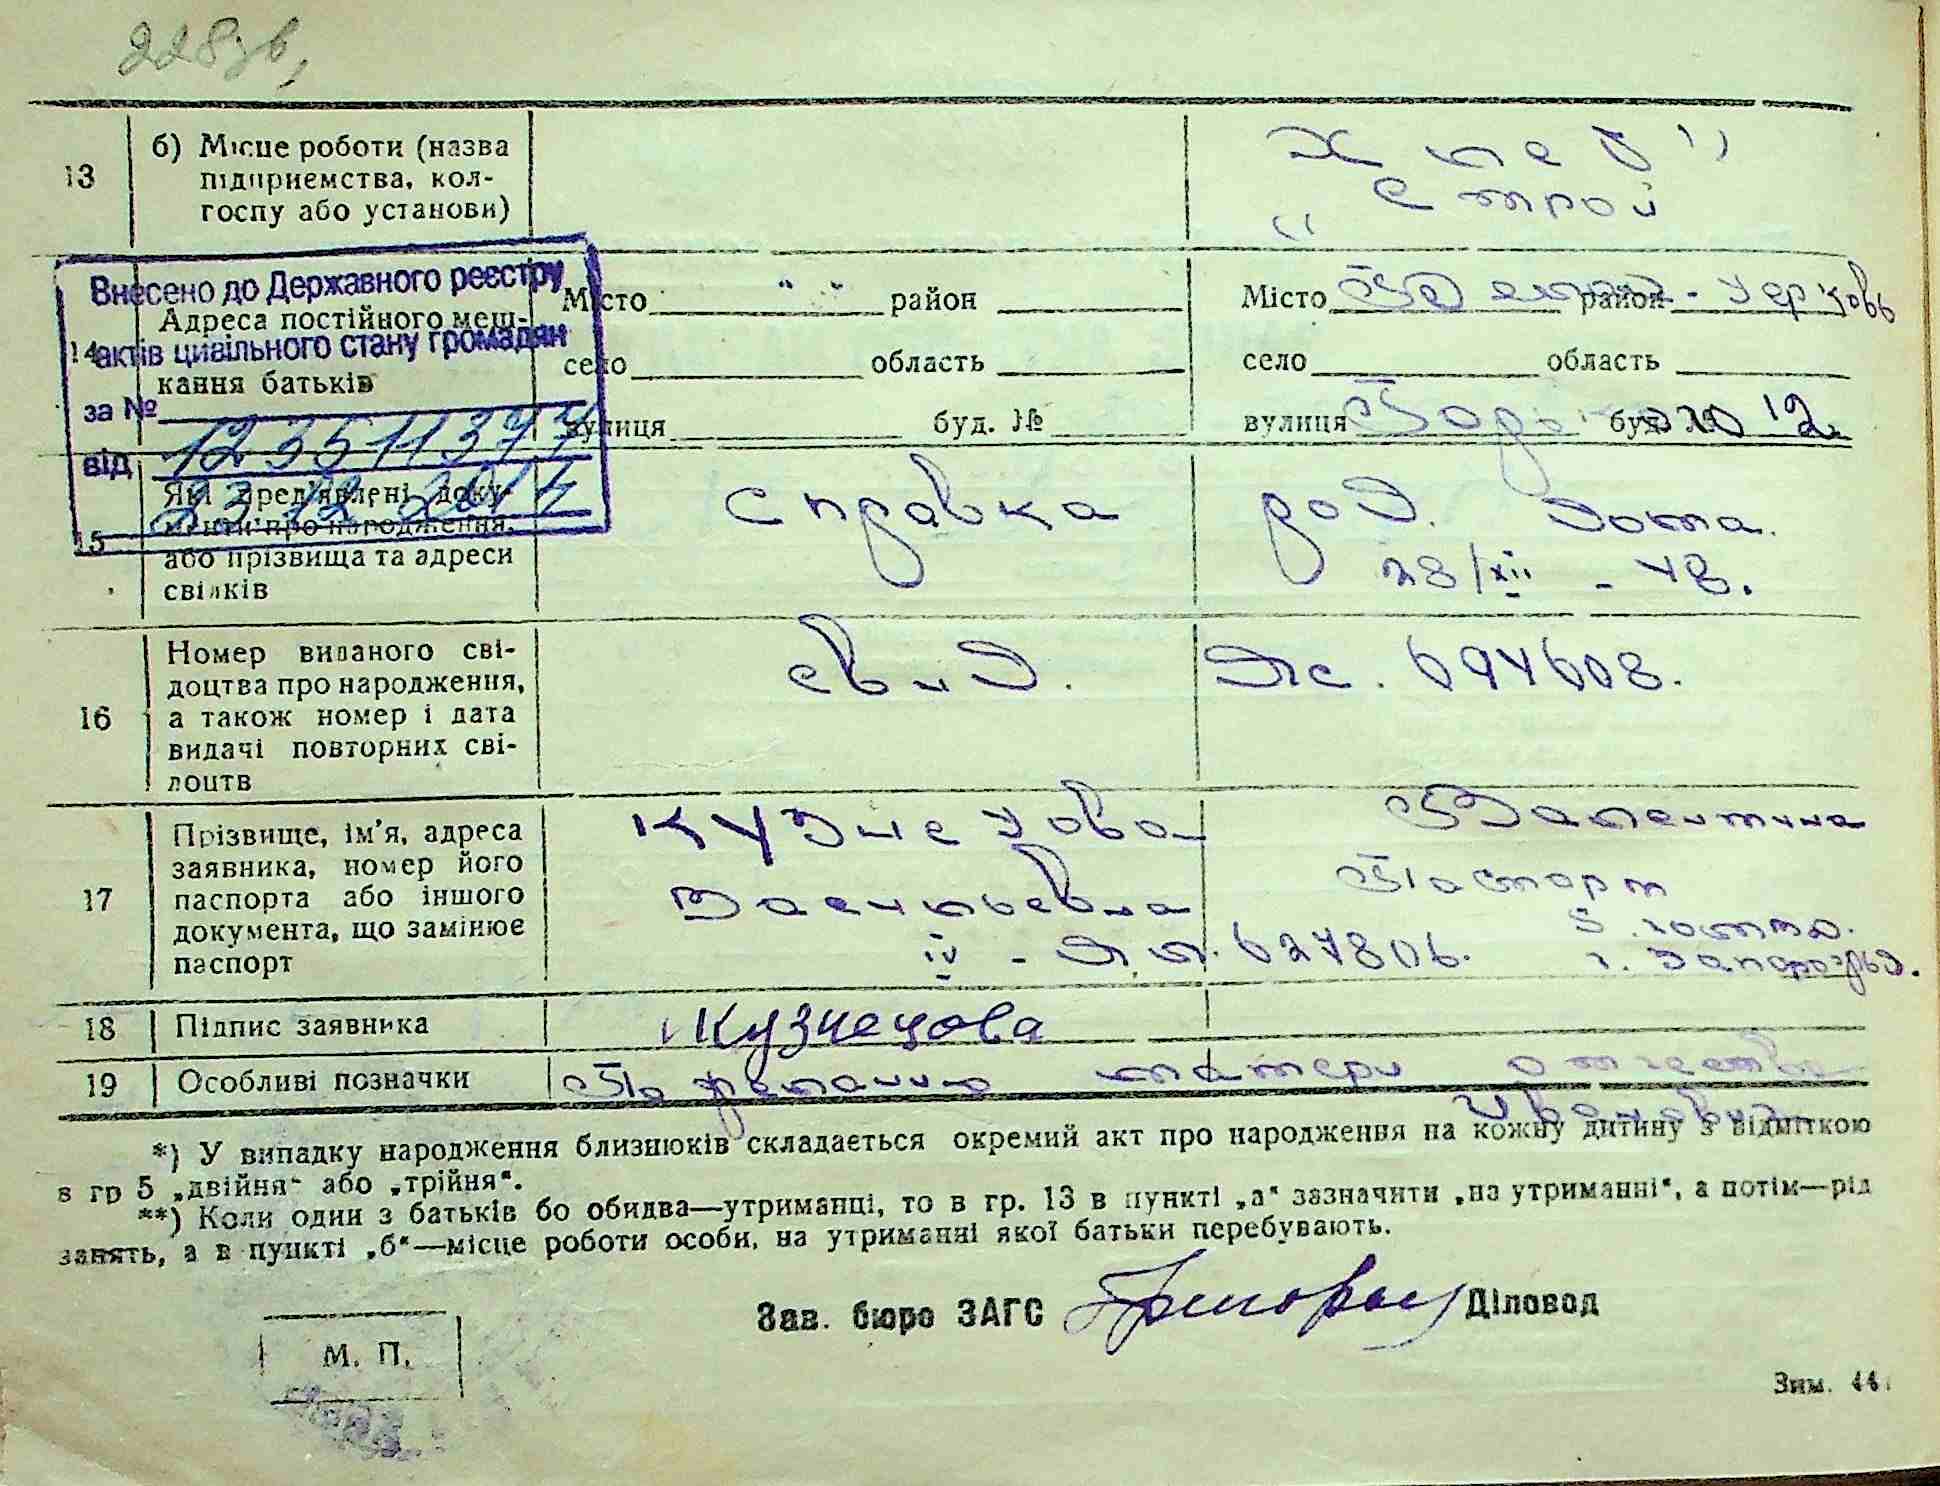 228зв,
13 б) Місце роботи (назва підприємства, колгоспу або установи)
Хлеб"
"Строй
Внесено до Державного реєстру
актів цивільного стану громадян
за №
від 23 12 201
14 Адреса постійного мешкання батьків
Місто " " район
село область
вулиця буд. №
Місто район - Церковь
село область
вулиця буд. 12
15 Які пред'явлені документи про народження, або прізвища та адреси свідків
Справка род. дома.
28/XII - 48.
16 Номер виданого свідоцтва про народження, а також номер і дата видачі повторних свідоцтв
свид. № 694608.
17 Прізвище, ім'я, адреса заявника, номер його паспорта або іншого документа, що замінює паспорт
Кузнецова Валентина
Васильевна Паспорт
IV - 627806. 5.
г. Запорожья.
18 Підпис заявника Кузнецова
19 Особливі позначки По желанию матери отчество
*) У випадку народження близнюків складається окремий акт про народження на кожну дитину з відміткою
в гр 5 „двійня“ або „трійня“.
**) Коли один з батьків бо обидва—утриманці, то в гр. 13 в пункті „а“ зазначити „на утриманні“, а потім—рід
занять, а в пункті „б“—місце роботи особи, на утриманні якої батьки перебувають.
Зав. бюро ЗАГС Діловод
М. П.
Зам. 44